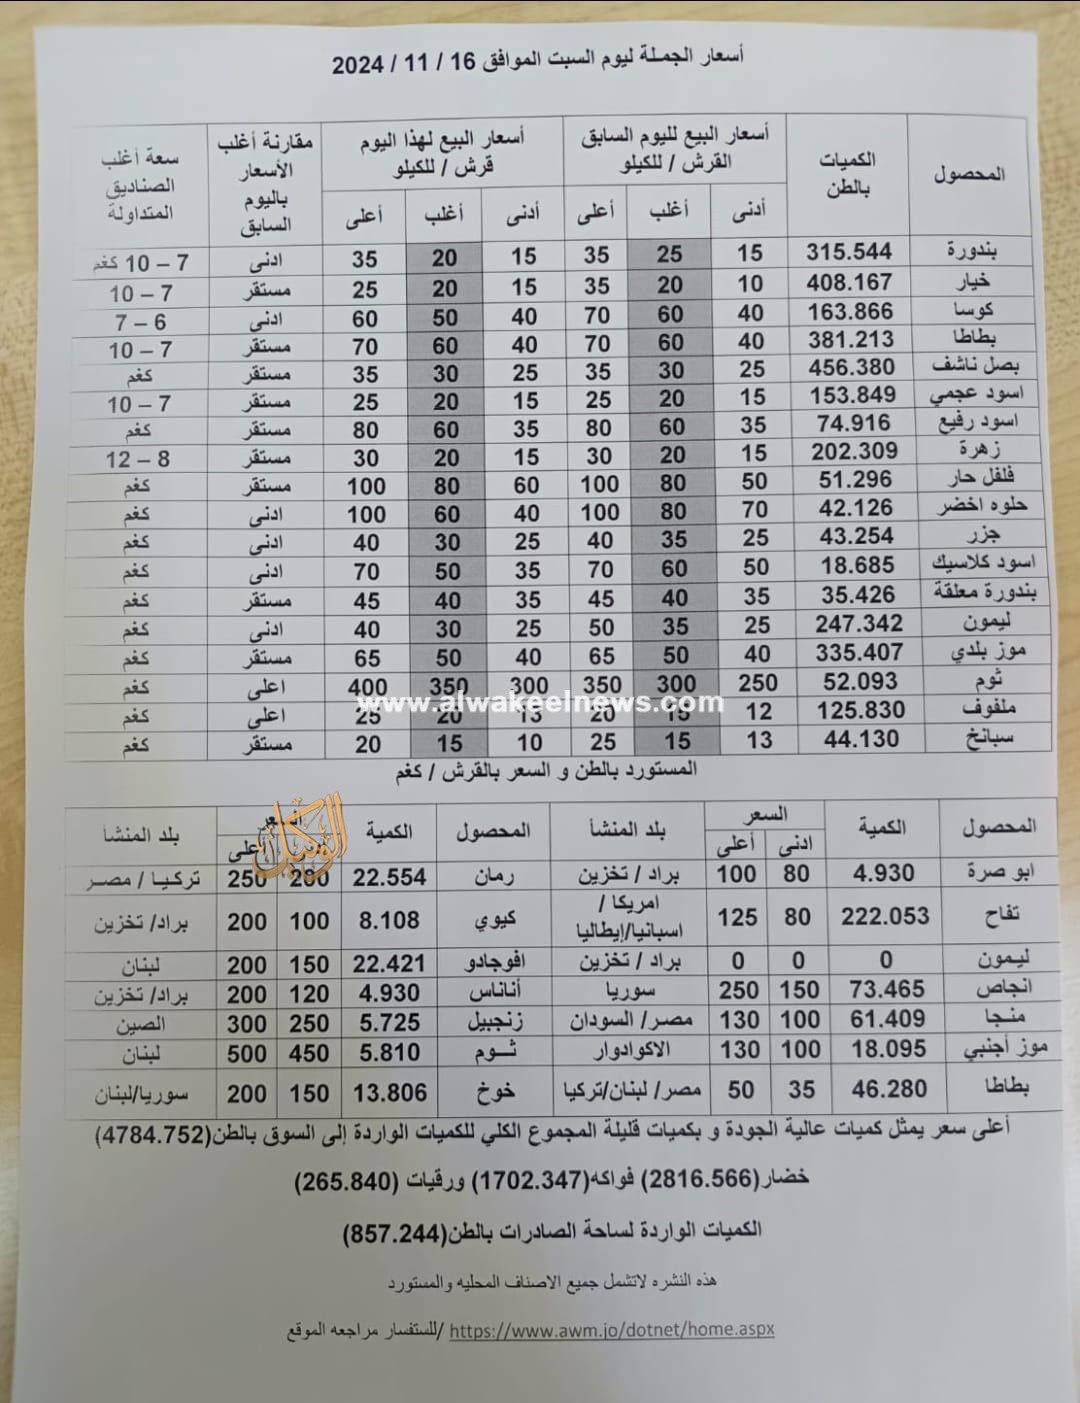 أسعار الجملة ليوم السبت الموافق 16 / 11 / 2024
المحصول الكميات بالطن أسعار البيع لليوم السابق القرش / للكيلو أسعار البيع لهذا اليوم قرش / للكيلو مقارنة أغلب الأسعار باليوم السابق سعة أغلب الصناديق المتداولة
أدنى أغلب أعلى أدنى أغلب أعلى
بندورة 315.544 15 25 35 15 20 35 ادنى 7 – 10 كغم
خيار 408.167 10 20 35 15 20 25 مستقر 7 – 10
كوسا 163.866 40 60 70 40 50 60 ادنى 6 – 7
بطاطا 381.213 40 60 70 40 60 70 مستقر 7 – 10
بصل ناشف 456.380 25 30 35 25 30 35 مستقر كغم
اسود عجمي 153.849 15 20 25 15 20 25 مستقر 7 – 10
اسود رفيع 74.916 35 60 80 35 60 80 مستقر كغم
زهرة 202.309 15 20 30 15 20 30 مستقر 8 – 12
فلفل حار 51.296 50 80 100 60 80 100 مستقر كغم
حلوه اخضر 42.126 70 80 100 40 60 100 ادنى كغم
جزر 43.254 25 35 40 25 30 40 ادنى كغم
اسود كلاسيك 18.685 50 60 70 35 50 70 ادنى كغم
بندورة معلقة 35.426 35 40 45 35 40 45 مستقر كغم
ليمون 247.342 25 35 50 25 30 40 ادنى كغم
موز بلدي 335.407 40 50 65 40 50 65 مستقر كغم
ثوم 52.093 250 300 350 300 350 400 اعلى كغم
www.alwakeelnews.com
ملفوف 125.830 12 15 20 13 20 25 اعلى كغم
سبانخ 44.130 13 15 25 10 15 20 مستقر كغم
المستورد بالطن و السعر بالقرش / كغم
المحصول الكمية السعر بلد المنشأ المحصول الكمية السعر بلد المنشأ
ادنى أعلى أعلى
الوكيل
ابو صرة 4.930 80 100 براد / تخزين رمان 22.554 200 250 تركيا / مصر
تفاح 222.053 80 125 امريكا / اسبانيا/إيطاليا كيوي 8.108 100 200 براد/ تخزين
ليمون 0 0 0 براد / تخزين افوجادو 22.421 150 200 لبنان
انجاص 73.465 150 250 سوريا أناناس 4.930 120 200 براد/ تخزين
منجا 61.409 100 130 مصر/ السودان زنجبيل 5.725 250 300 الصين
موز أجنبي 18.095 100 130 الاكوادوار ثوم 5.810 450 500 لبنان
بطاطا 46.280 35 50 مصر/ لبنان/تركيا خوخ 13.806 150 200 سوريا/لبنان
أعلى سعر يمثل كميات عالية الجودة و بكميات قليلة المجموع الكلي للكميات الواردة إلى السوق بالطن(4784.752)
خضار(2816.566) فواكه(1702.347) ورقيات (265.840)
الكميات الواردة لساحة الصادرات بالطن(857.244)
هذه النشره لاتشمل جميع الاصناف المحليه والمستورد
للستفسار مراجعه الموقع/ https://www.awm.jo/dotnet/home.aspx